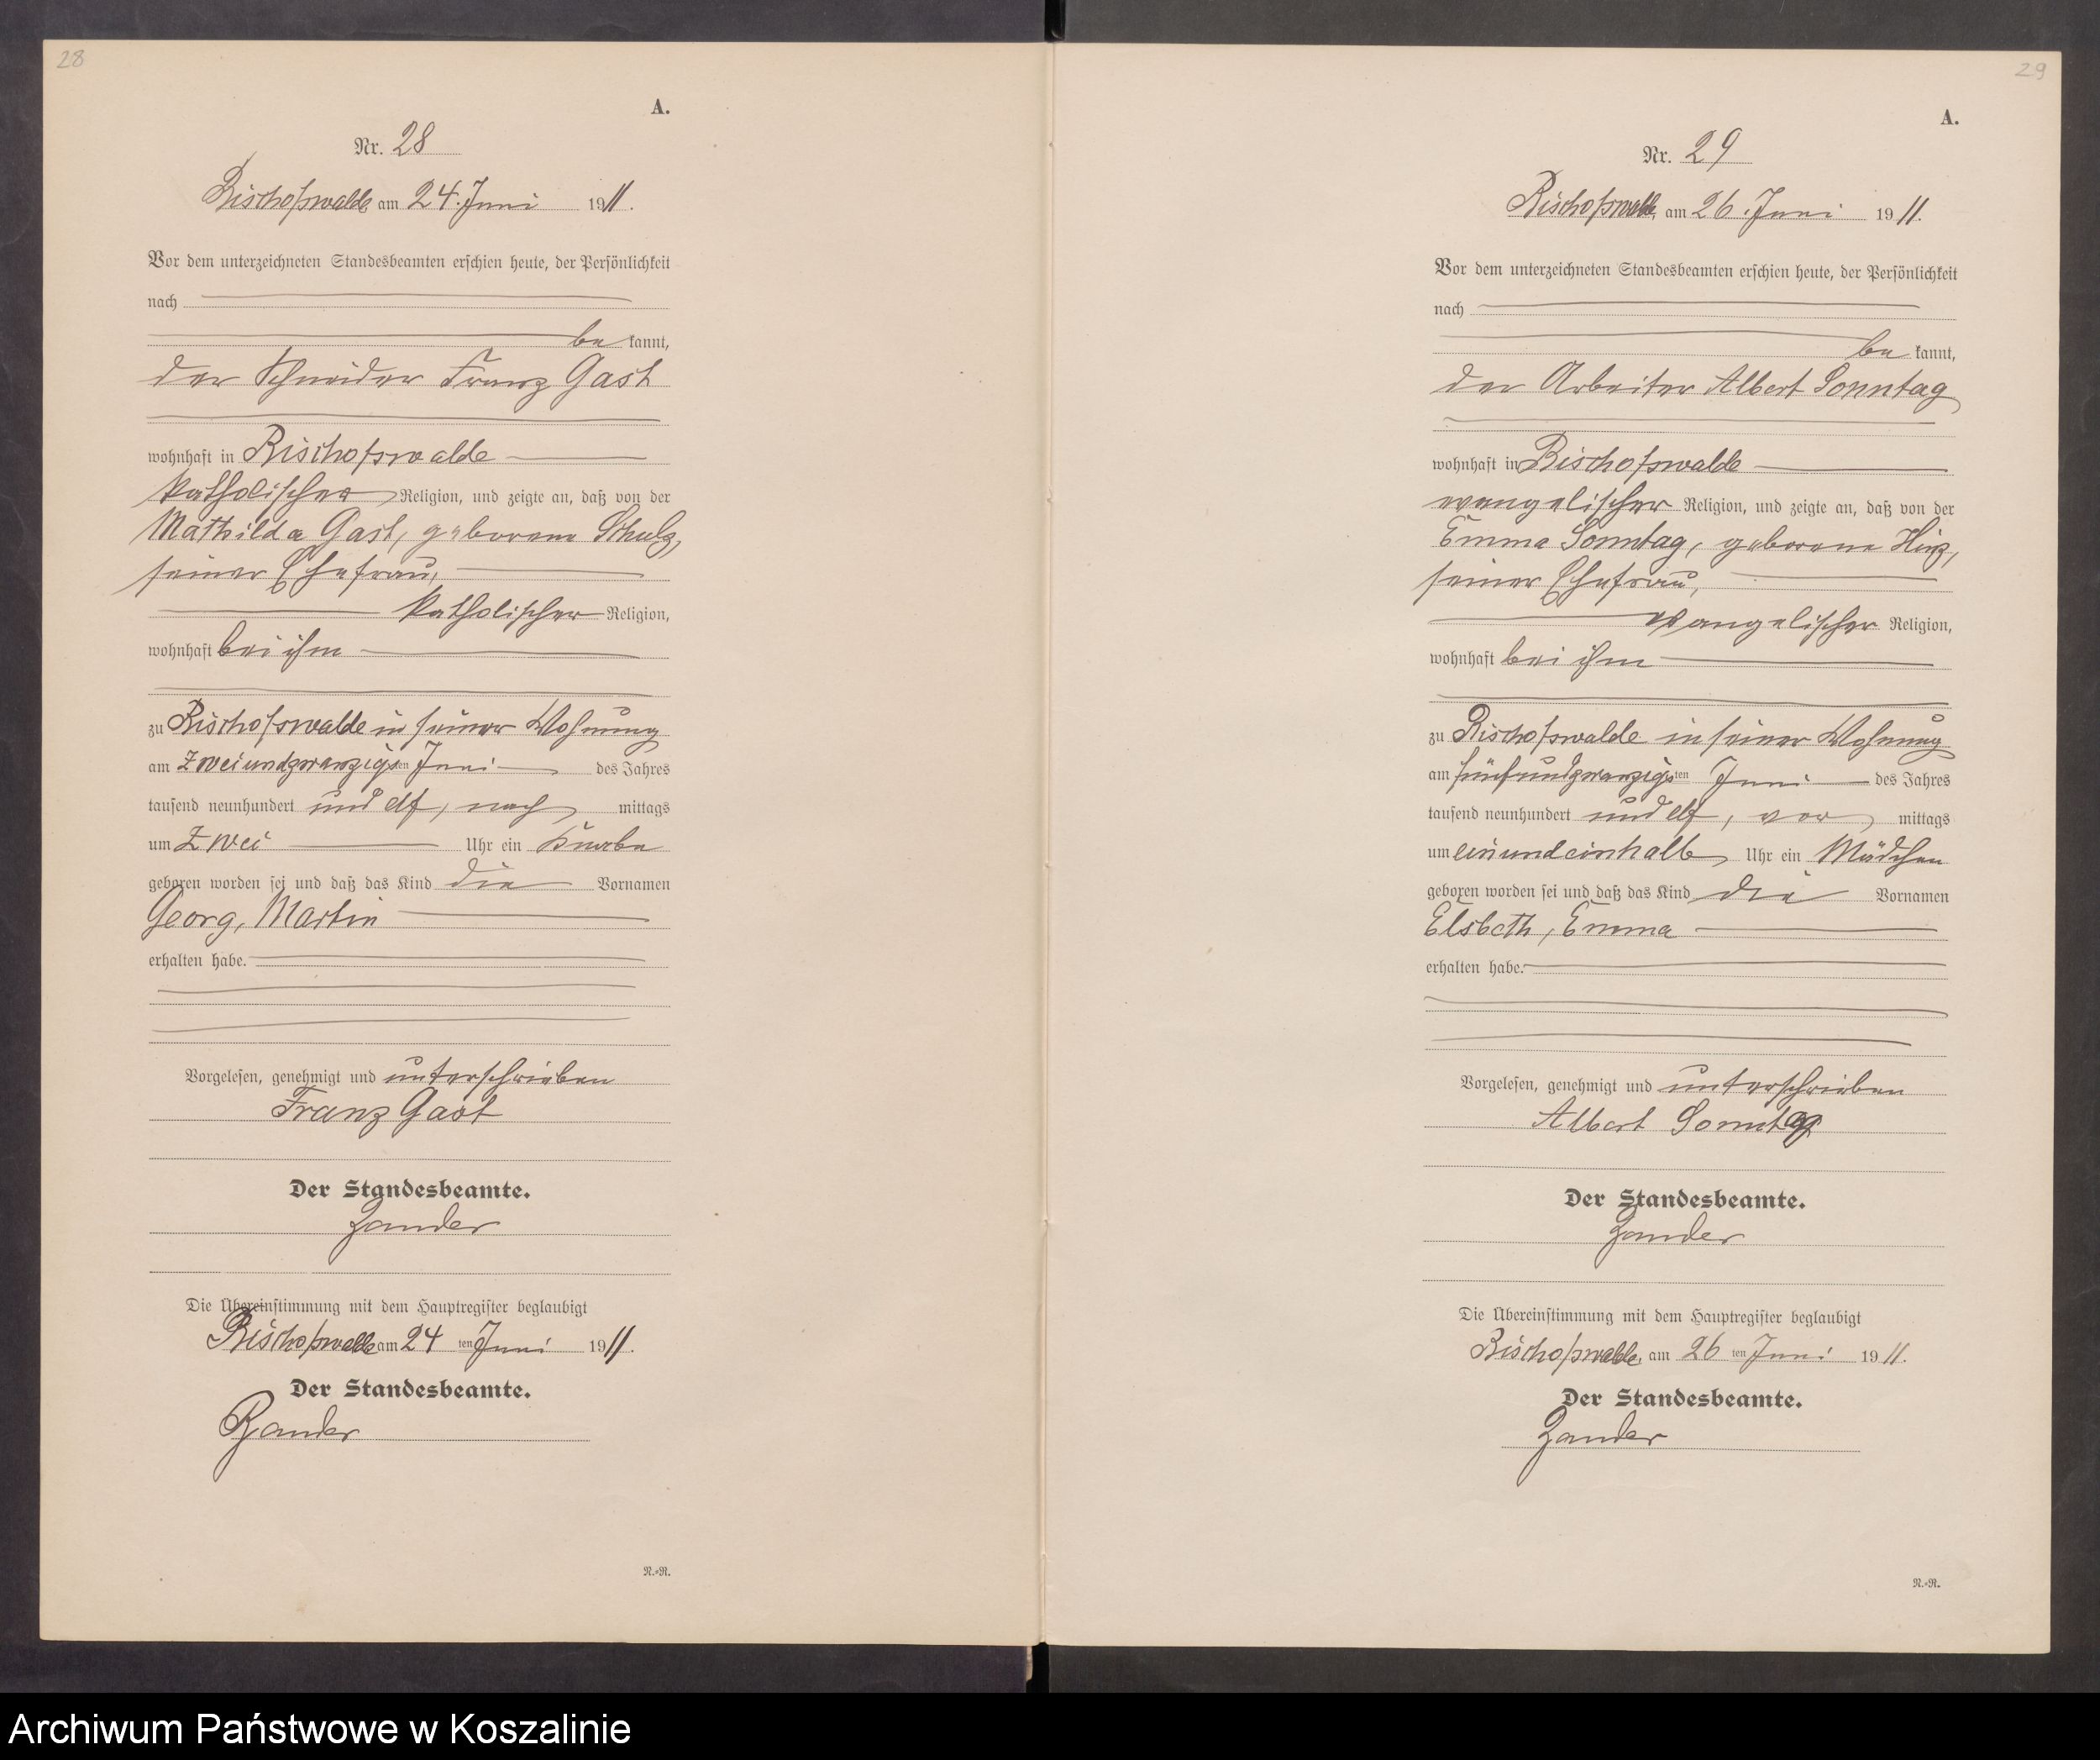 28
A.
Nr. 28
Bischofswalde am 24. Juni 1911.
Vor dem unterzeichneten Standesbeamten erschien heute, der Persönlichkeit
nach
be kannt,
der Schneider Franz Gast
wohnhaft in Bischofswalde
katholischer Religion, und zeigte an, daß von der
Mathilda Gast, geborene Schulz,
seiner Ehefrau,
katholischer Religion,
wohnhaft bei ihm
zu Bischofswalde in seiner Wohnung
am zweiundzwanzigsten Juni des Jahres
tausend neunhundert und elf, nach mittags
um zwei Uhr ein Knabe
geboren worden sei und daß das Kind die Vornamen
Georg, Martin
erhalten habe.
Vorgelesen, genehmigt und unterschrieben
Franz Gast
Der Standesbeamte.
Zander
Die Übereinstimmung mit dem Hauptregister beglaubigt
Bischofswalde am 24 ten Juni 1911.
Der Standesbeamte.
Zander
N.-R.
29
A.
Nr. 29
Bischofswalde, am 26. Juni 1911.
Vor dem unterzeichneten Standesbeamten erschien heute, der Persönlichkeit
nach
be kannt,
der Arbeiter Albert Sonntag
wohnhaft in Bischofswalde
evangelischer Religion, und zeigte an, daß von der
Emma Sonntag, geborene Hinz,
seiner Ehefrau,
evangelischer Religion,
wohnhaft bei ihm
zu Bischofswalde in seiner Wohnung
am fünfundzwanzigsten Juni des Jahres
tausend neunhundert und elf, vor mittags
um einundeinhalb Uhr ein Mädchen
geboren worden sei und daß das Kind die Vornamen
Elsbeth, Emma
erhalten habe.
Vorgelesen, genehmigt und unterschrieben
Albert Sonntag
Der Standesbeamte.
Zander
Die Übereinstimmung mit dem Hauptregister beglaubigt
Bischofswalde, am 26 ten Juni 1911.
Der Standesbeamte.
Zander
N.-R.
Archiwum Państwowe w Koszalinie